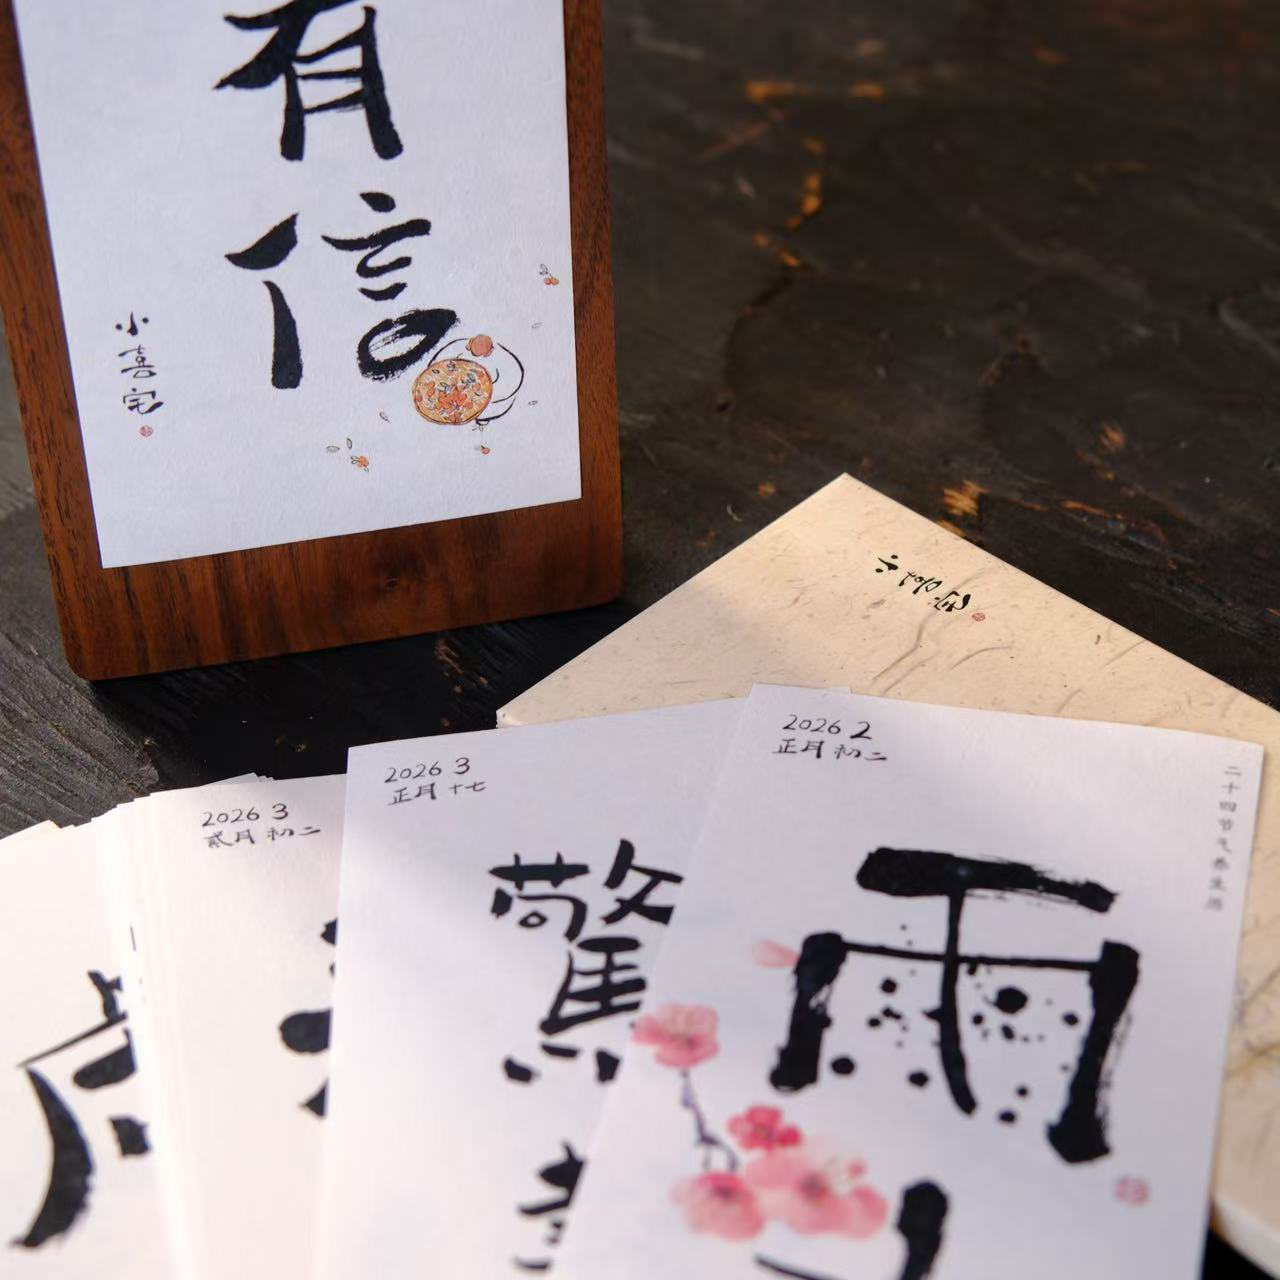 有
信
小喜宅
小喜宅
2026 3
贰月 初二
2026 3
正月 十七
驚
2026 2
正月 初二
二十四节气养生历
雨